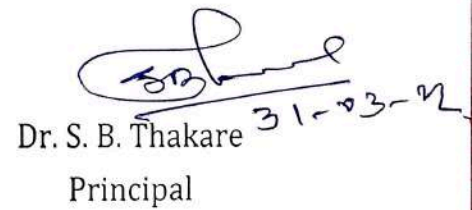 31-03-22
Dr. S. B. Thakare
Principal